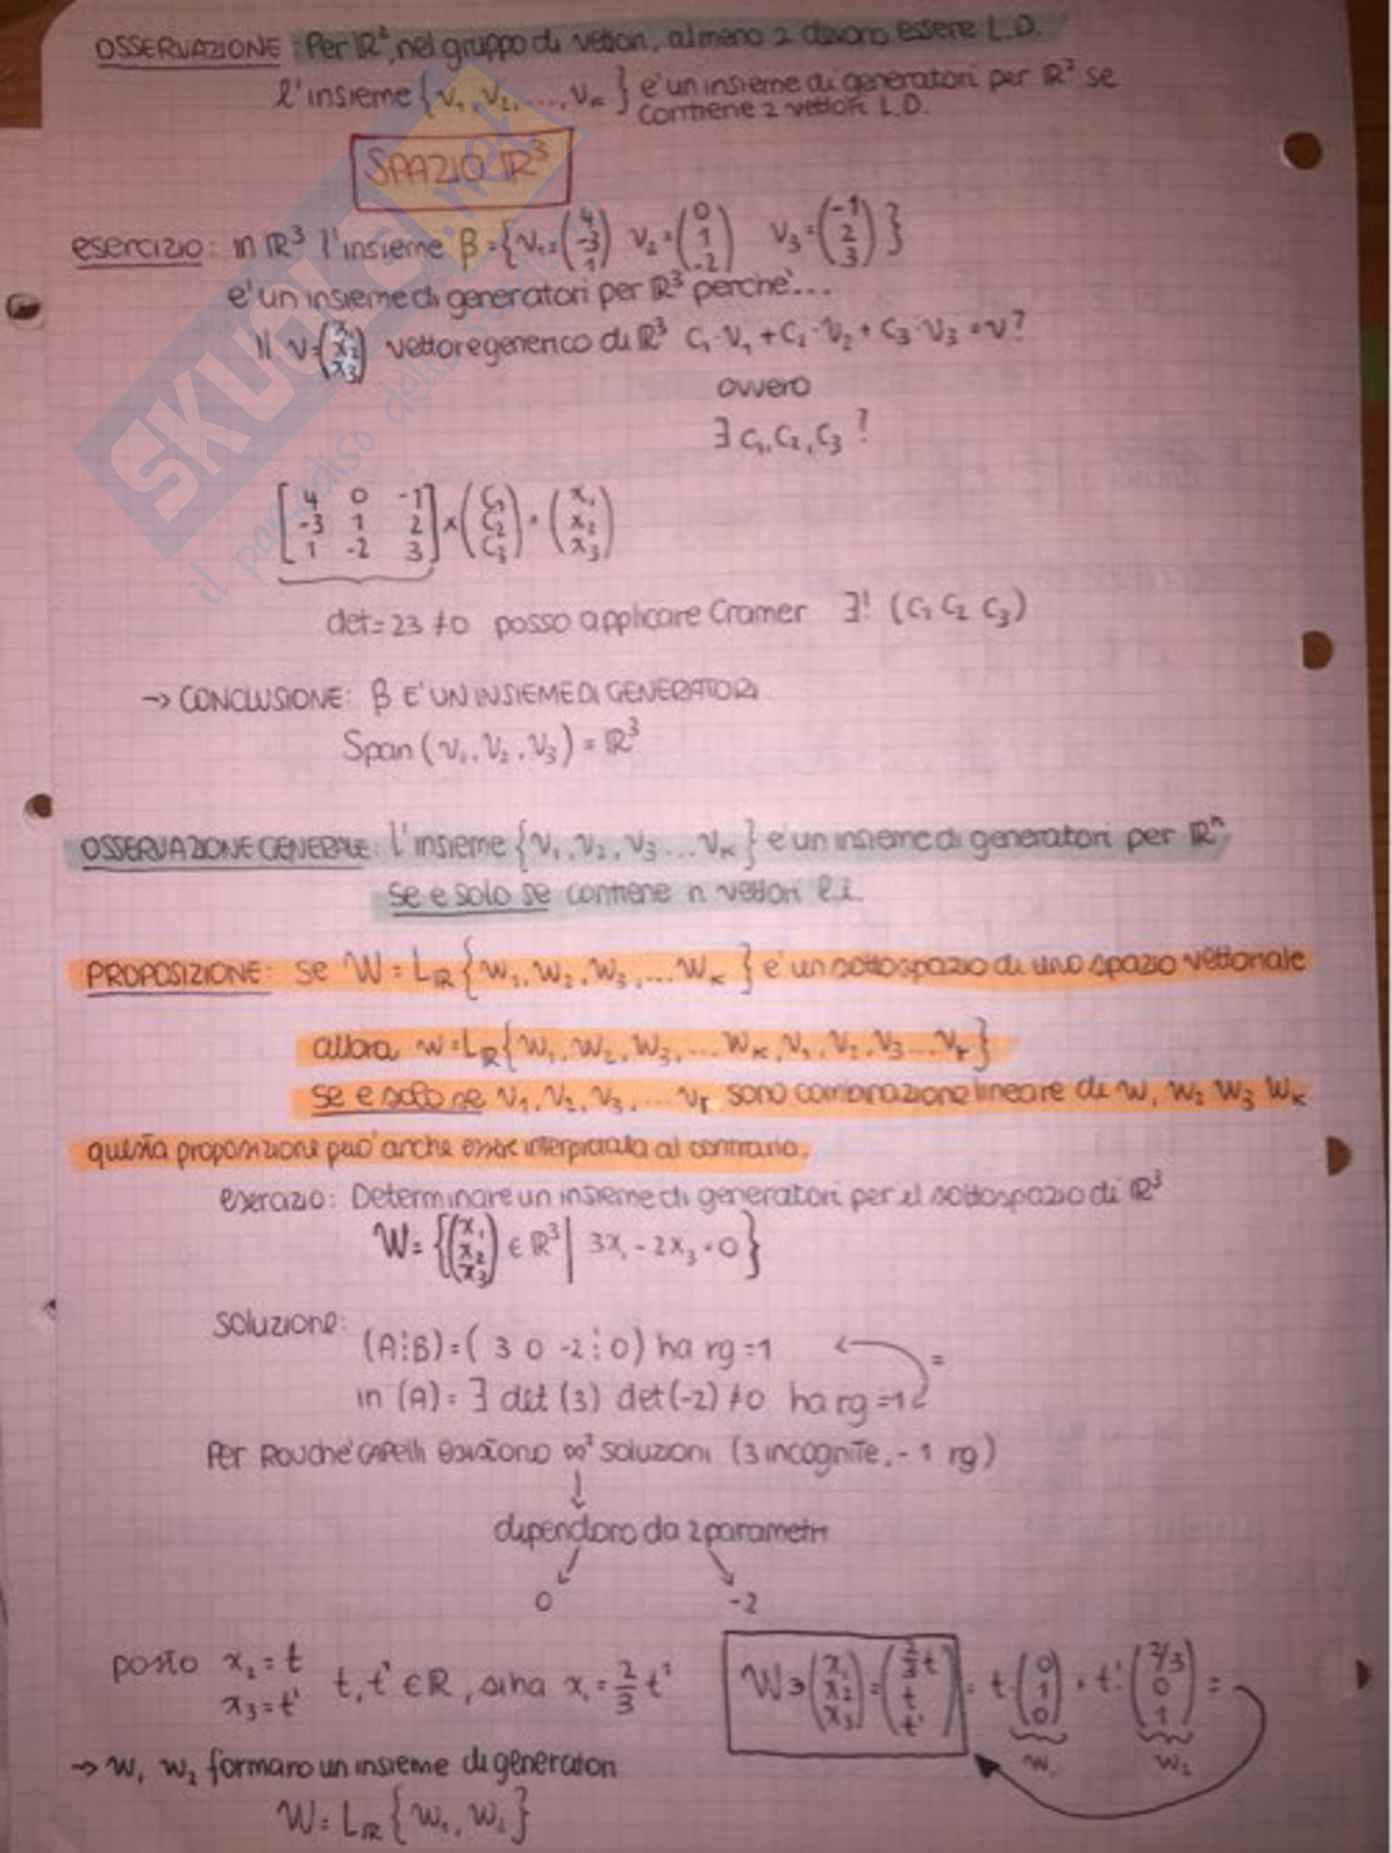 OSSERVAZIONE: Per ℝ², nel gruppo di vettori, almeno 2 devono essere L.D.
l'insieme {v₁, v₂, ..., vₖ} e' un insieme di generatori per ℝ² se
contiene 2 vettori L.D.
SPAZIO ℝ³
esercizio: in ℝ³ l'insieme β = {v₁ = (4 -3 1) v₂ = (0 1 -2) v₃ = (-1 2 3)}
e' un insieme di generatori per ℝ³ perche'...
Il v = (x₁ x₂ x₃) vettore generico di ℝ³ c₁·v₁ + c₂·v₂ + c₃·v₃ = v?
ovvero
∃ c₁, c₂, c₃ ?
[4 0 -1
-3 1 2
1 -2 3] × (c₁ c₂ c₃) = (x₁ x₂ x₃)
det = 23 ≠ 0 posso applicare Cramer ∃! (c₁ c₂ c₃)
→ CONCLUSIONE: β E' UN INSIEME DI GENERATORI
Span (v₁, v₂, v₃) = ℝ³
OSSERVAZIONE GENERALE: l'insieme {v₁, v₂, v₃ ... vₖ} e' un insieme di generatori per ℝⁿ
se e solo se contiene n vettori l.i.
PROPOSIZIONE: se W = L_ℝ {w₁, w₂, w₃, ... wₖ} e' un sottospazio di uno spazio vettoriale
allora w = L_ℝ {w₁, w₂, w₃, ... wₖ, v₁, v₂, v₃ ... vᵣ}
se e solo se v₁, v₂, v₃, ... vᵣ sono combinazione lineare di w₁ w₂ w₃ wₖ
questa proposizione puo' anche esser interpretata al contrario.
esercizio: Determinare un insieme di generatori per il sottospazio di ℝ³
W = {(x₁ x₂ x₃) ∈ ℝ³ | 3x₁ - 2x₃ = 0}
soluzione:
(A⋮B) = (3 0 -2 ⋮ 0) ha rg = 1
=
in (A) = ∃ det (3) det (-2) ≠ 0 ha rg = 1
Per Rouche' Capelli esistono ∞² soluzioni (3 incognite, - 1 rg)
↓
dipendono da 2 parametri
0 -2
posto x₂ = t
x₃ = t' t, t' ∈ ℝ, si ha x₁ = 2/3 t'
W ∋ (x₁ x₂ x₃) = (2/3 t t t') = t · (0 1 0) + t' · (2/3 0 1) =
w₁ w₂
→ w₁ w₂ formano un insieme di generatori
W = L_ℝ {w₁, w₂}
SKUOLA.net
il paradiso dello